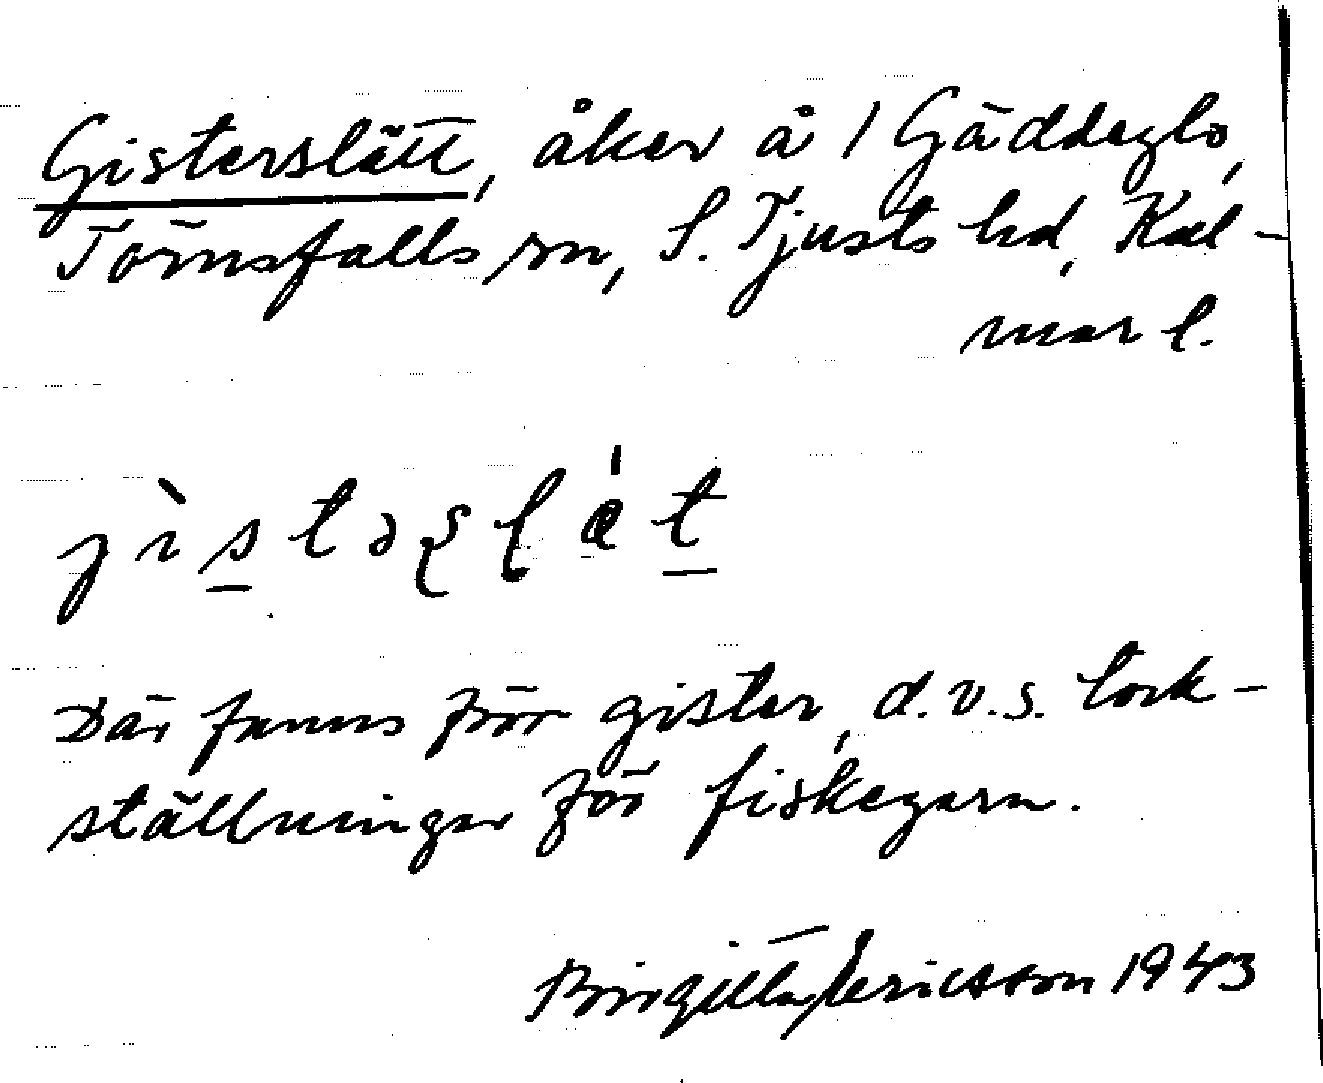 Gisterslätt, åker å 1 Gäddeglo,
Törnsfalls sn, S. Tjusts hd, Kal-
mar l.
jìstəʂɭát
Där fanns förr gister, d.v.s. tork-
ställningar för fiskegarn.
Birgitta Ericsson 1943